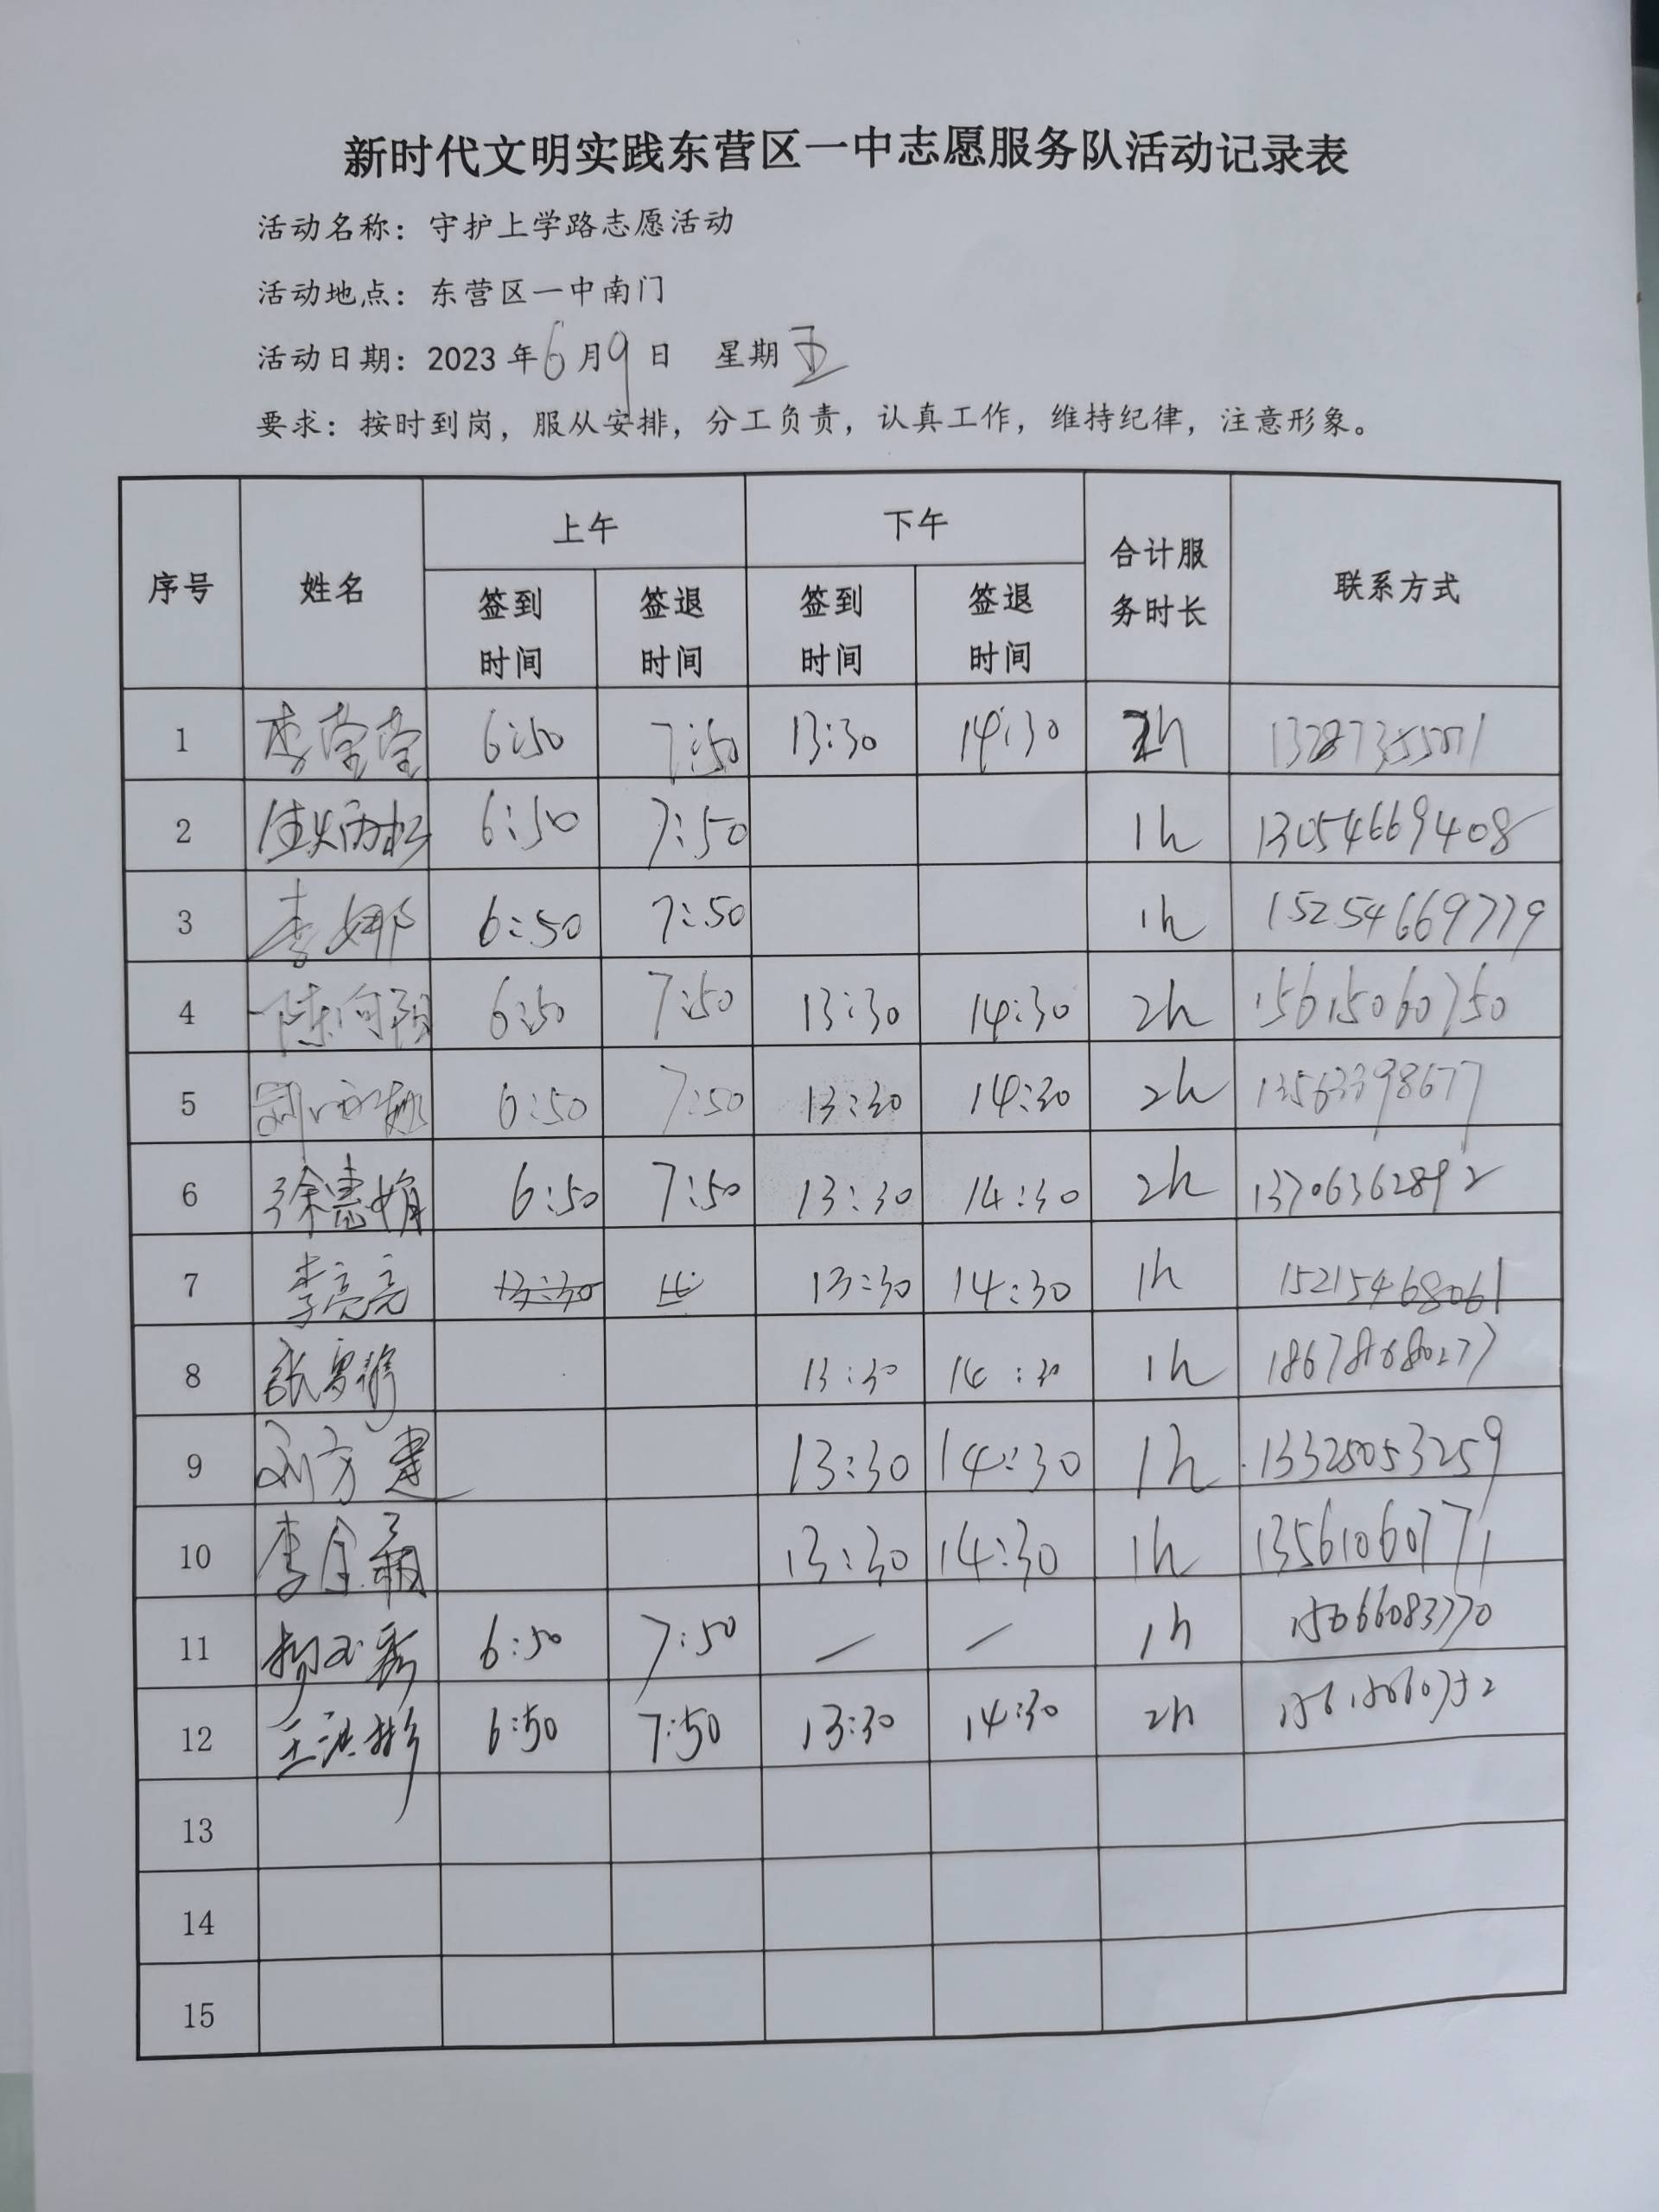 新时代文明实践东营区一中志愿服务队活动记录表
活动名称：守护上学路志愿活动
活动地点：东营区一中南门
活动日期：2023年6月9日 星期五
要求：按时到岗，服从安排，分工负责，认真工作，维持纪律，注意形象。
序号 姓名 上午 下午 合计服务时长 联系方式
签到时间 签退时间 签到时间 签退时间
1 李莹莹 6:50 7:50 13:30 14:30 2h
2 6:50 7:50 1h 13054669408
3 李娜 6:50 7:50 1h 15254669779
4 陈向 6:50 7:50 13:30 14:30 2h 15615060750
5 刘 6:50 7:50 13:30 14:30 2h 13563398677
6 徐惠娟 6:50 7:50 13:30 14:30 2h 13706362892
7 李亮亮 13:30 14:30 1h 15215468061
8 张 13:30 14:30 1h 18678680277
9 刘方建 13:30 14:30 1h 13325053259
10 李 13:30 14:30 1h 13561060771
11 杨玉 6:50 7:50 — — 1h 15066083770
12 王洪彬 6:50 7:50 13:30 14:30 2h 15615060752
13
14
15